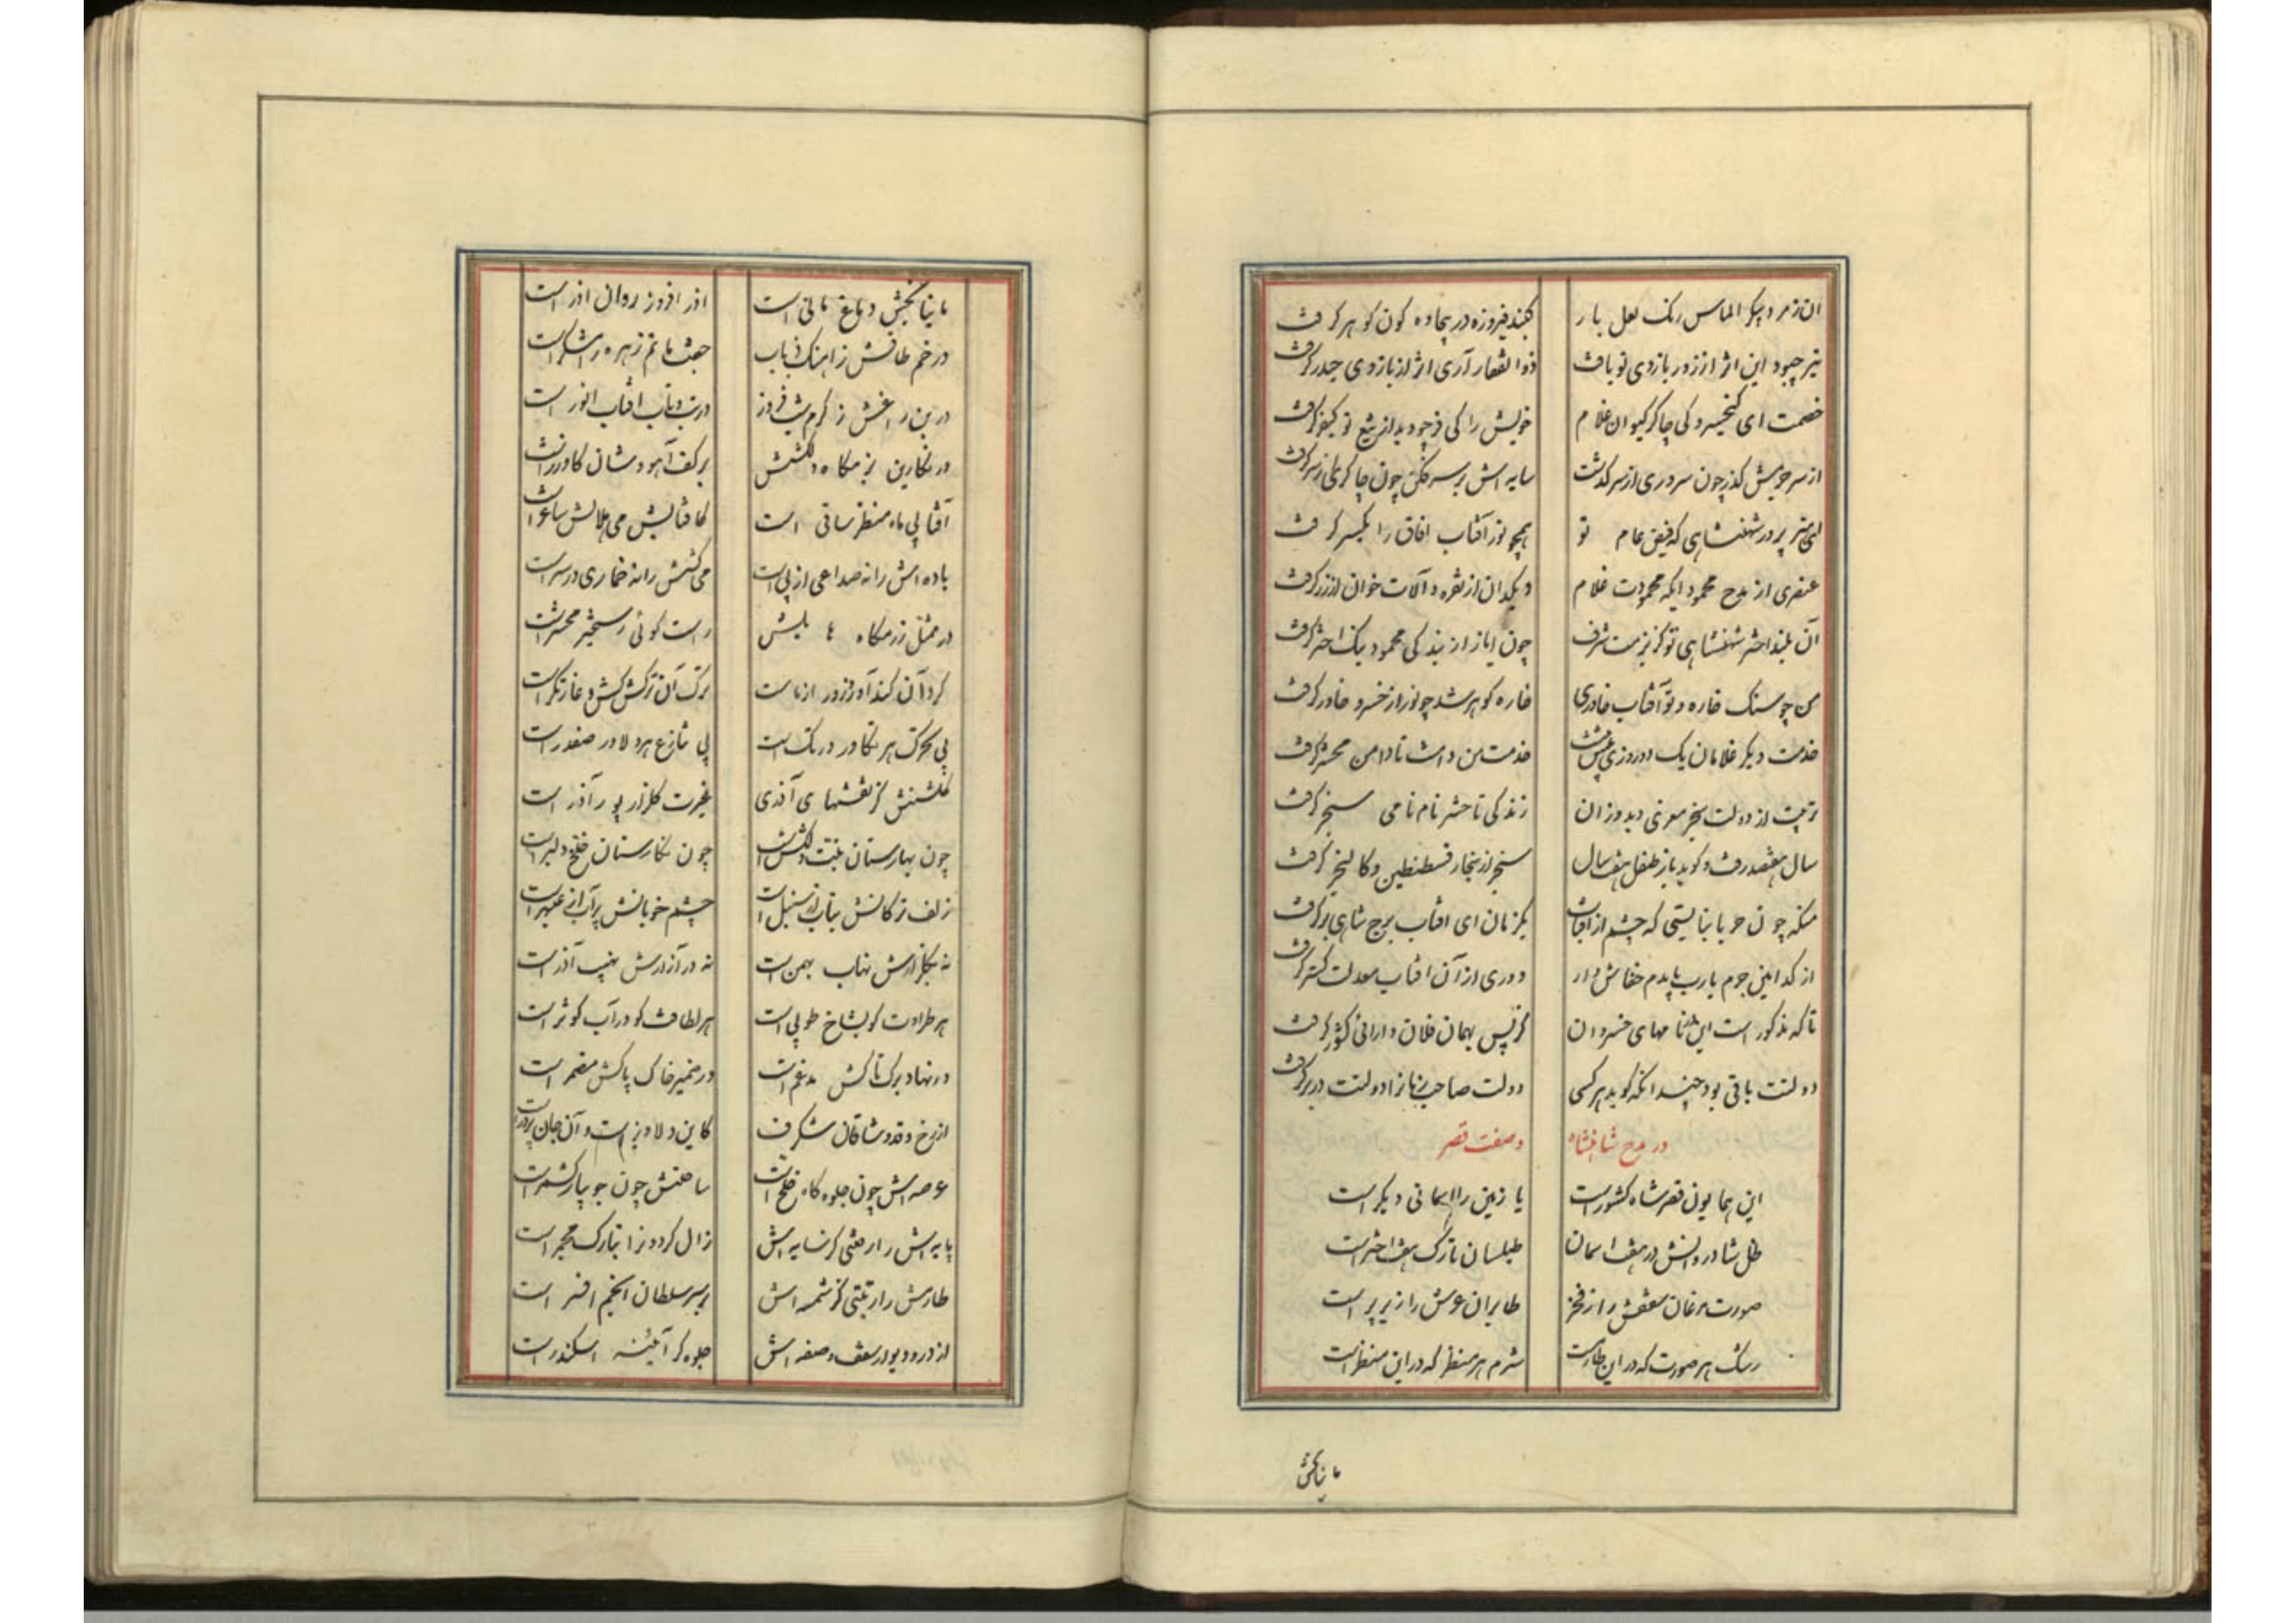 ان زمرد پیکر الماس رنک لعل بار کنبد فیروزه در بیجاده کون کوهر کرفت
نیز چبود این اثر از زور بازوی تو یافت ذوالفقار آری اثر از بازوی حیدر کرفت
خصمت ای کیخسرو کی چاکر کیوان غلام خویش را کی در خود از تیغ تو کیفر کرفت
از سر خویش کذر چون سروری از سر کذشت سایه اش بر سر فکن چون چاکری از سر کرفت
ای هنر پرور شهنشاهی که فیض عام تو همچو نور آفتاب افاق را یکسر کرفت
عنصری از مدح محمود ایکه محمودت غلام دیکدان از نقره و آلات خوان از زر کرفت
آن بلند اختر شهنشاهی تو کز بزمت شرف چون ایاز از بندکی محمود نیک اختر کرفت
من چو سنک خاره و تو آفتاب خاوری خاره کوهر شد چو نور از خسرو خاور کرفت
خدمت دیکر غلامان یک دو روزی بیش نیست خدمت من دامنت تا دامن محشر کرفت
تربیت از دولت سنجر معزی دید و زان زندکی تا حشر نام نامی سنجر کرفت
سال هفتصد رفت و کوید باز طفل هفت سال سنجر از سنجار قسطنطین و کالنجر کرفت
منکه چون حربا بنایستی که چشم از آفتاب یکزمان ای افتاب برج شاهی بر کرفت
از کدامین جرم یارب بایدم خفاش وار دوری از آن افتاب معدلت کستر کرفت
تا که مذکور است این نامهای خسروان کز پس بهمان فلان دارائی کشور کرفت
دولتت باقی بود چندانکه کوید هر کسی دولت صاحب زمانرا دولتت در بر کرفت
در مدح شاهنشاه و صفت قصر
این همایون قصر شاه کشور است یا زمین را اسمانی دیکر است
ظل شادروانش در هفت اسمان طیلسان تارک هفت اختر است
صورت مرغان سقفش را ز فخر طایران عرش را زیر پر است
رشک هر صورت که در این طارمست شرم هر منظر که در این منظر است
ما نیابخش
ما نیابخش دماغ مانی است اذر افروز روان اذر است
در خم طاقش ز اهنک ذباب جفت ماتم زهره رامشکر است
در بن راغش ز کرم شب فروز در تب و تاب افتاب انور است
در نکارین بزمکاه دلکشش بر کف آهو وشان کاو زر است
آفتابی ماه منظر ساقی است کافتابش می هلالش ساغر است
باده اش را نه صداعی از پی است می کشش را نه خماری در سر است
در ممثل رزمکاه هایلش راست کوئی رستخیز محشر است
کرد آن کند آور زور ازماست ترک آن ترکش کش و غارتکر است
بی تحرک هر تکاور در تک است بی تنازع هر دلاور صفدر است
کلشنش کز نقشهای آذری غیرت کلزار پور آذر است
چون بهارستان بتّت دلکش است چون نکارستان خلخ دلبر است
زلف ترکانش بتاب از سنبل است چشم خوبانش پر آب از عبهر است
نه بکلزارش نهاب بهمن است نه در آزارش نهیب آذر است
هر طراوت کو بشاخ طوبی است هر لطافت کو در آب کوثر است
در نهاد برک تاکش مدغم است در ضمیر خاک پاکش مضمر است
از رخ و قد وشاقان شکرف کاین دلاویز است و آن جان پرور است
عرصه اش چون جلوه کاه خلخ است ساحتش چون جویبار کشمر است
پایه اش را رفعتی کز سایه اش زال کردون را بتارک معجر است
طارمش را رتبتی کز شمسه اش بر سر سلطان انجم افسر است
از در و دیوار سقف و صفه اش جلوه کر آیئنه اسکندر است